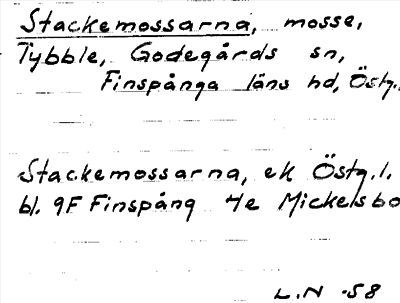 Stackemossarna, mosse,
Tybble, Godegårds sn,
Finspånga läns hd, Östg.
Stackemossarna, ek Östg.l.
bl. 9F Finspång 4e Mickelsbo
L.N -58